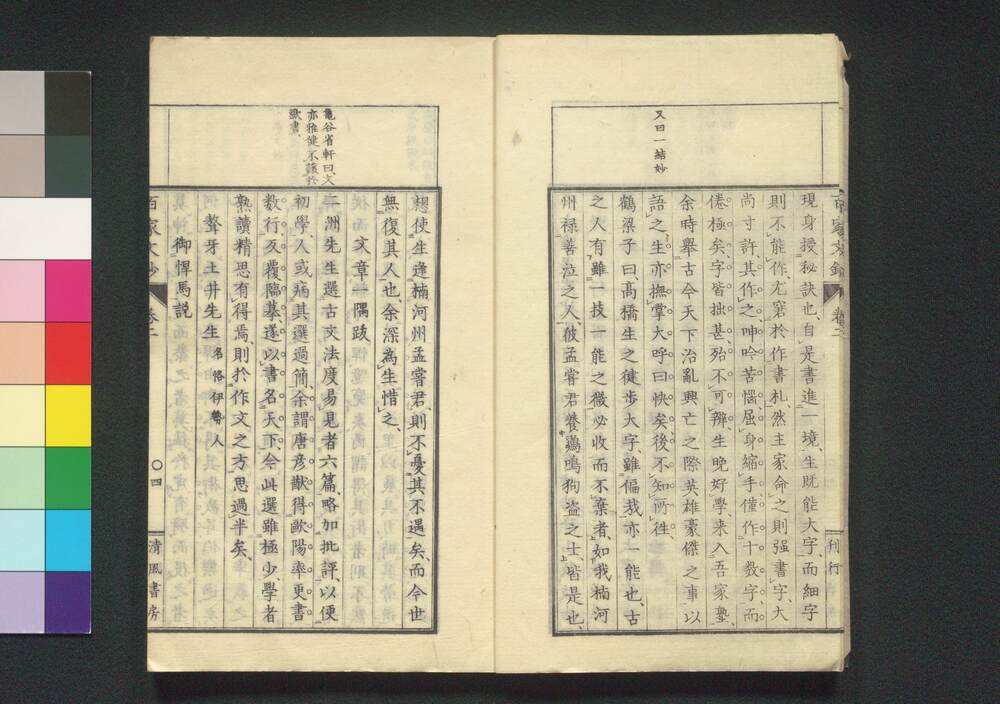 又曰一結妙
現身授秘訣也、自是書進一境、生既能大字、而細字
則不能作、尤窘於作書札、然主家命之則强書、字大
尚寸許、其作之呻吟苦惱、屈身縮手、僅作十數字、而
倦極矣、字皆拙甚、殆不可辨、生晚好學、来入吾家塾、
余時舉古今天下治亂興亡之際英雄豪傑之事以
語之、生亦撫掌大呼曰快矣、後不知所徃、
鶴梁子曰、高橋生之健步大字、雖偏哉、亦一能也、古
之人有雖一技一能之微必收而不棄者、如我楠河
州禄善泣之人、彼孟嘗君養鷄鳴狗盗之士、皆是也、
百家文鈔 卷二 刊行
想使生逢楠河州孟嘗君、則不憂其不遇矣、而今世
無復其人也、余深為生惜之、
文章一隅跋
龜谷省軒曰、文
亦雅健、不讓於
歐書、
二洲先生選古文法度易見者六篇、略加批評、以便
初學、人或病其選過簡、余謂唐彦猷得歐陽率更書
數行、反覆臨摹、遂以書名天下、今此選雖極少、學者
熟讀精思有得焉、則於作文之方思過半矣、
聱牙土井先生 名恪伊勢人
御悍馬説
百家文鈔 卷二 〇四 清風書房